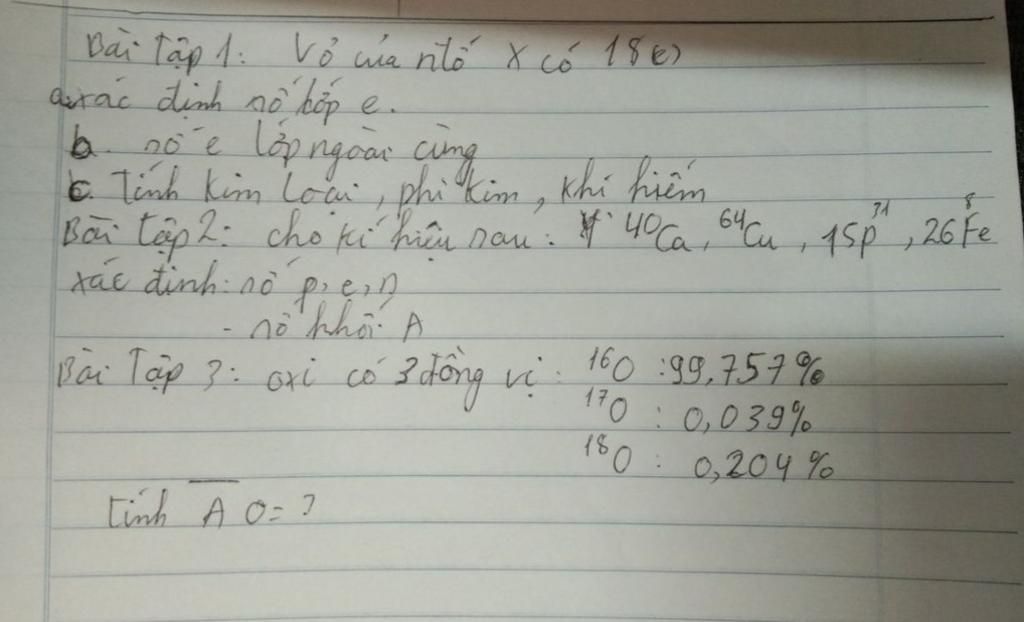 Bài tập 1: Vỏ của ntố X có 18(e)
a. xác định số lớp e.
b. số e lớp ngoài cùng
c. Tính kim loại, phi kim, khí hiếm
Bài tập 2: cho kí hiệu sau: ⁴⁰Ca, ⁶⁴Cu, 15P³¹, 26Fe
xác định: số p, e, n
- số khối A
Bài Tập 3: oxi có 3 đồng vị: ¹⁶O : 99,757%
¹⁷O : 0,039%
¹⁸O : 0,204%
tính A̅ O = ?